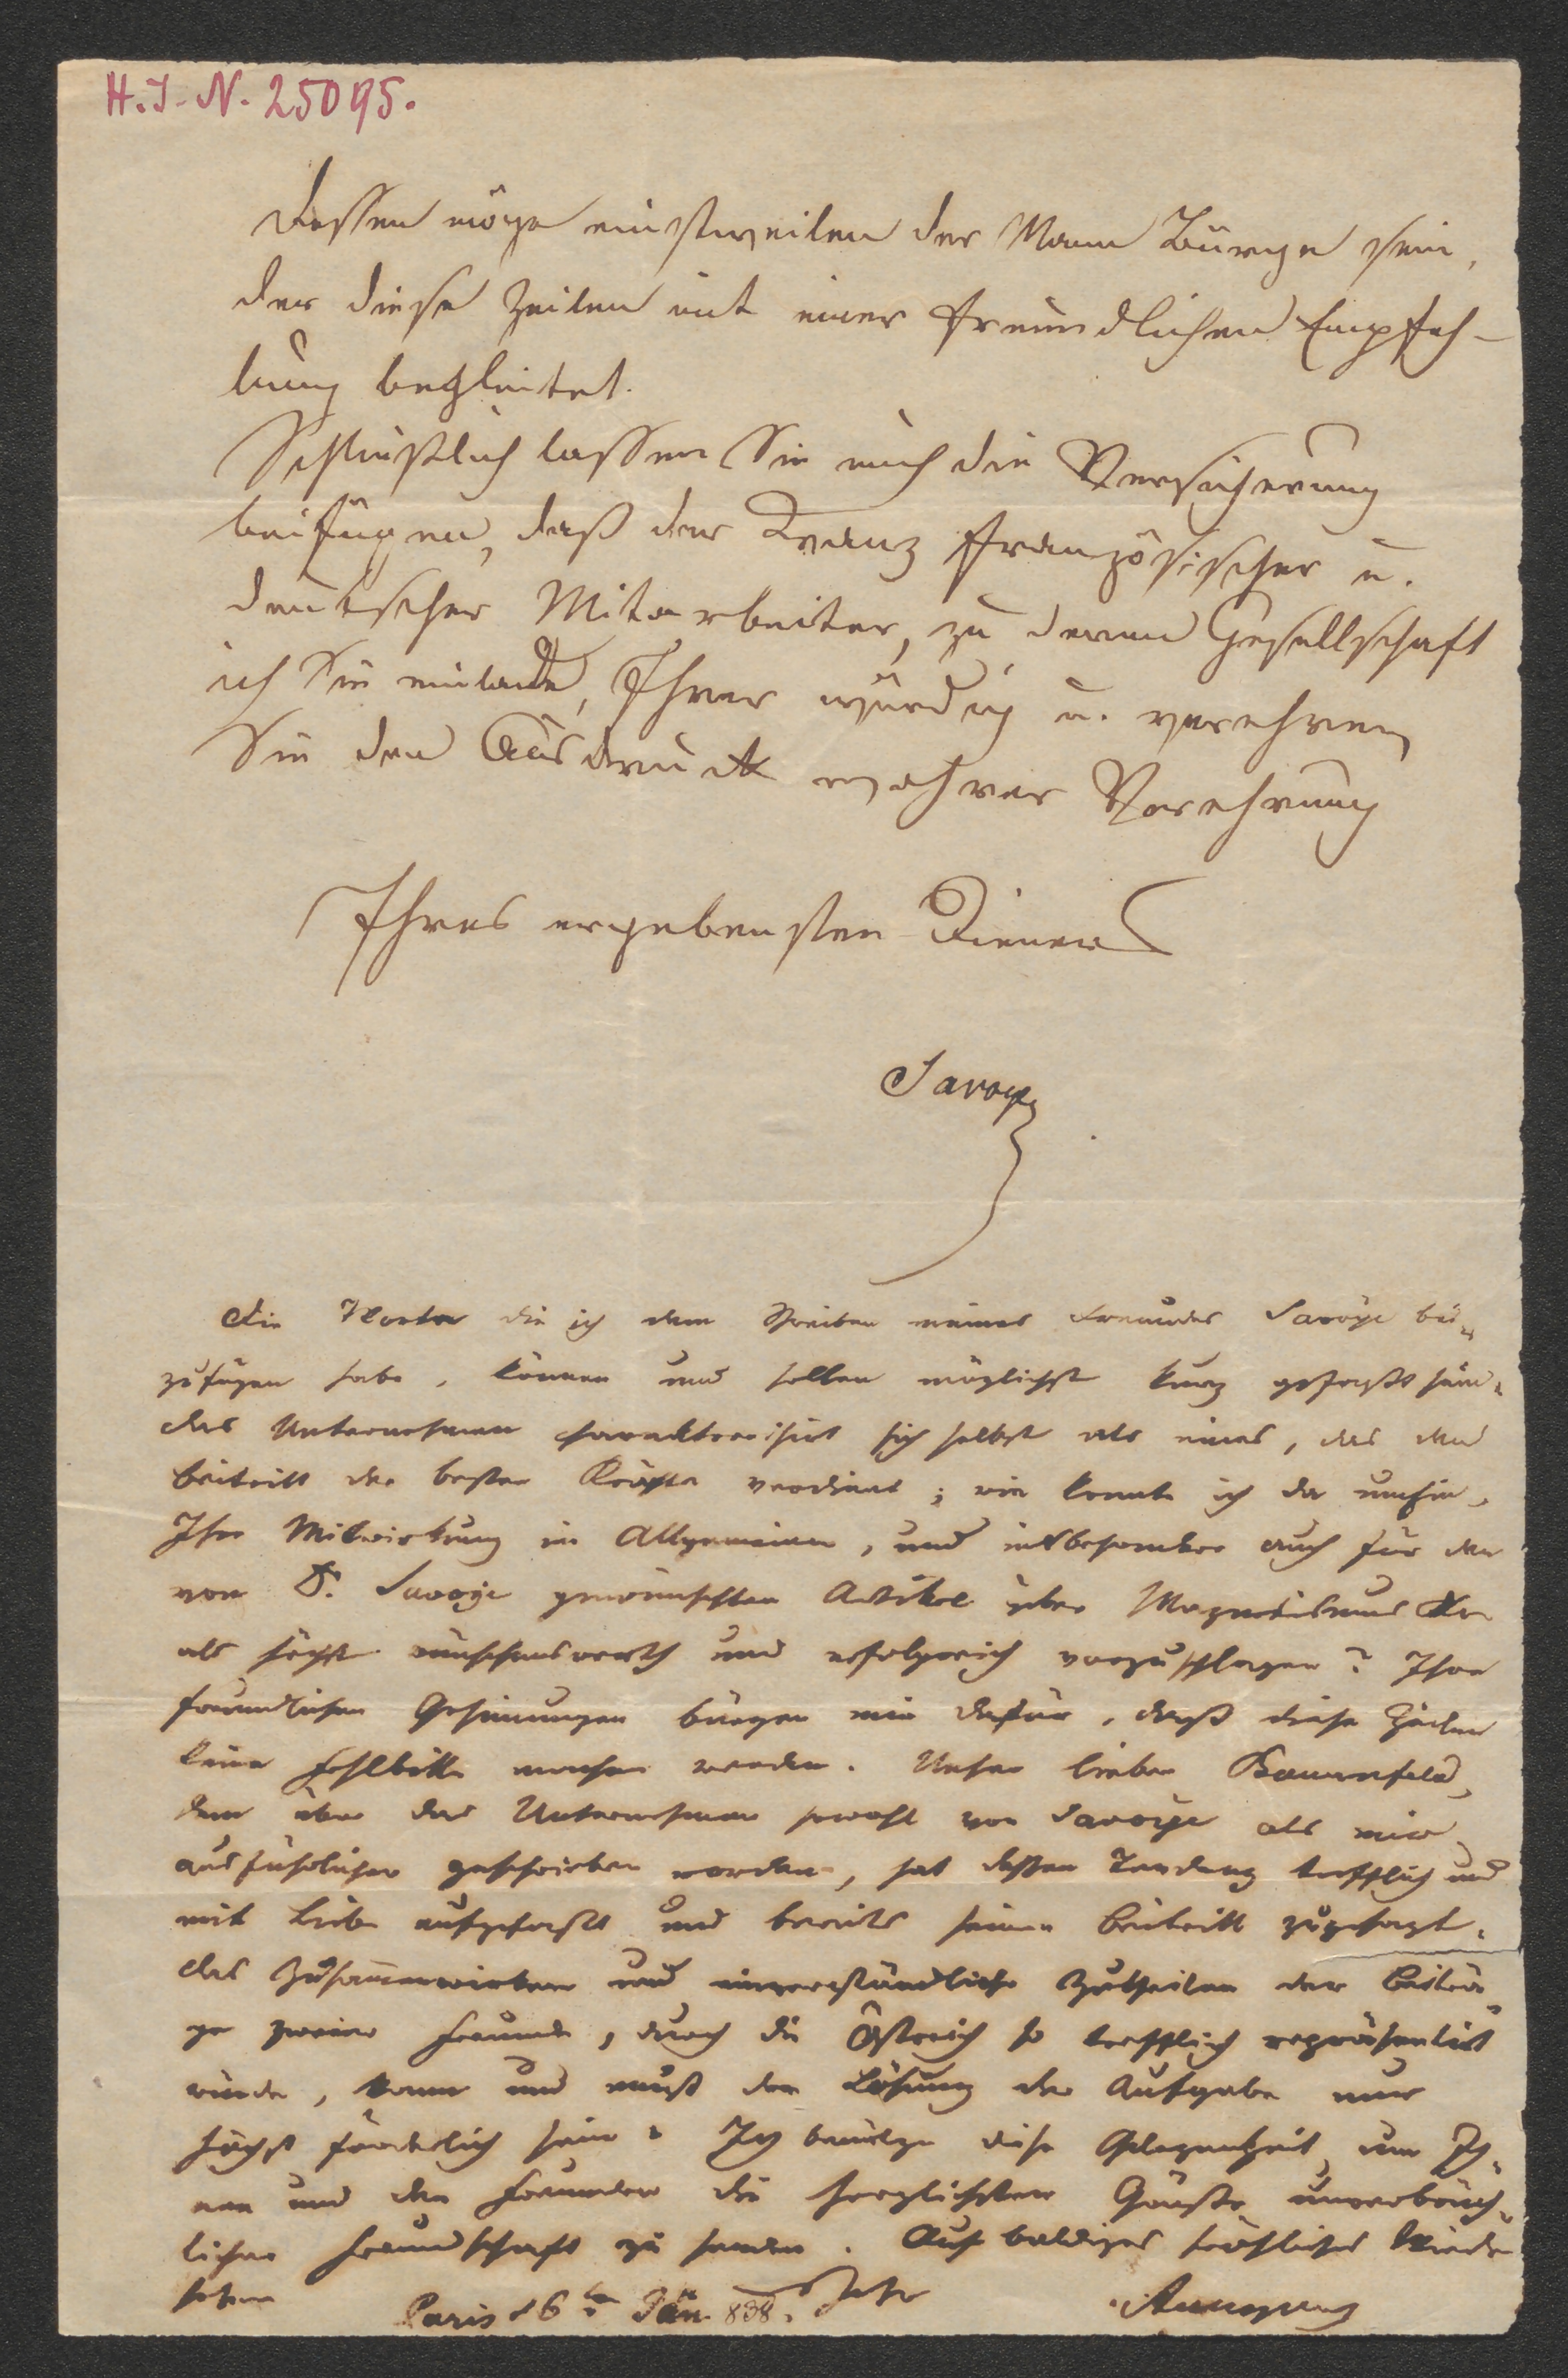 H.I.N. 25095.
dessen möge einstweilen der Mann Bürge sein,
der diese Zeilen mit einer freundlichen Empfeh-
lung begleitet.
Schließlich lassen Sie mich die Versicherung
beifügen, daß der Kranz französischer u.
deutscher Mitarbeiter, zu deren Gesellschaft
ich Sie einlade, Ihrer würdig u. verehren
Sie den Ausdruck wahrer Verehrung
Ihres ergebensten Dieners
Savoye
Die Worte die ich dem Schreiben meines Freundes Savoye bei-
zufügen habe, können und sollen möglichst kurz gefaßt sein.
Das Unternehmen charakterisirt sich selbst als eines, das den
Beitritt der besten Kräfte verdient; wie konnte ich da umhin,
Ihre Mitwirkung im Allgemeinen, und insbesondere auch für den
von D. Savoye gewünschten Artikel über Magnetismus
als höchst wünschenswerth und erfolgreich vorzuschlagen? Ihre
freundlichen Gesinnungen bürgen mir dafür, daß diese Zeilen
keine Fehlbitte machen werden. Unser lieber Bauernfeld,
dem über das Unternehmen sowohl von Savoye als mir
ausführlicher geschrieben worden, hat dessen Tendenz trefflich und
mit Liebe aufgefaßt und bereits seinen Beitritt zugesagt.
Das Zusammenwirken und einverständliche Zutheilen der Beiträ
ge zweier Freunde, durch die Östreich so trefflich repräsentirt
würde, kann und muß der Lösung der Aufgabe nur
höchst förderlich sein. Ich benütze diese Gelegenheit, um Ih-
nen und den Freunden die herzlichsten Grüße unverbrüch-
licher Freundschaft zu senden. Auf baldiges fröhliches Wieder
sehen
Paris 26 Jän. 838. Ihr